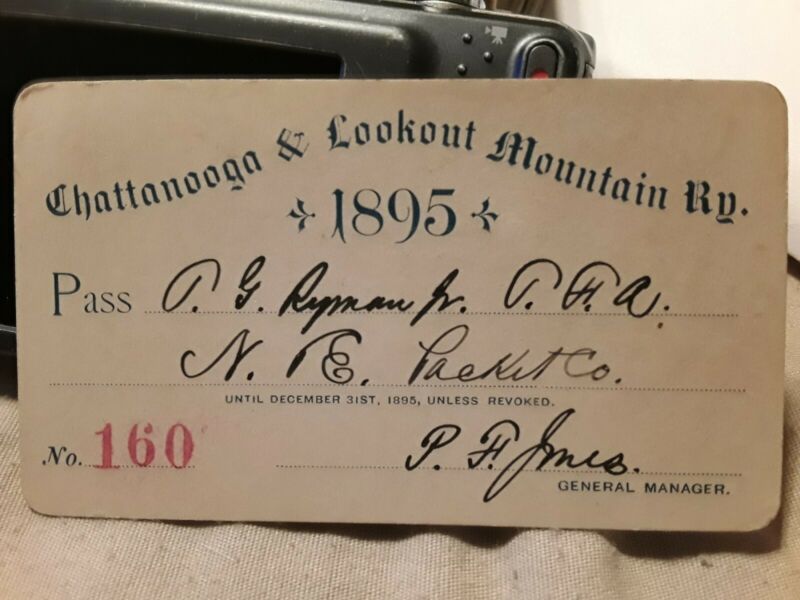 Chattanooga & Lookout Mountain Ry.
1895
Pass T. G. Ryman Jr. T. F. A.
N. & E. Packet Co.
UNTIL DECEMBER 31ST, 1895, UNLESS REVOKED.
No. 160
P. F. Jones.
GENERAL MANAGER.